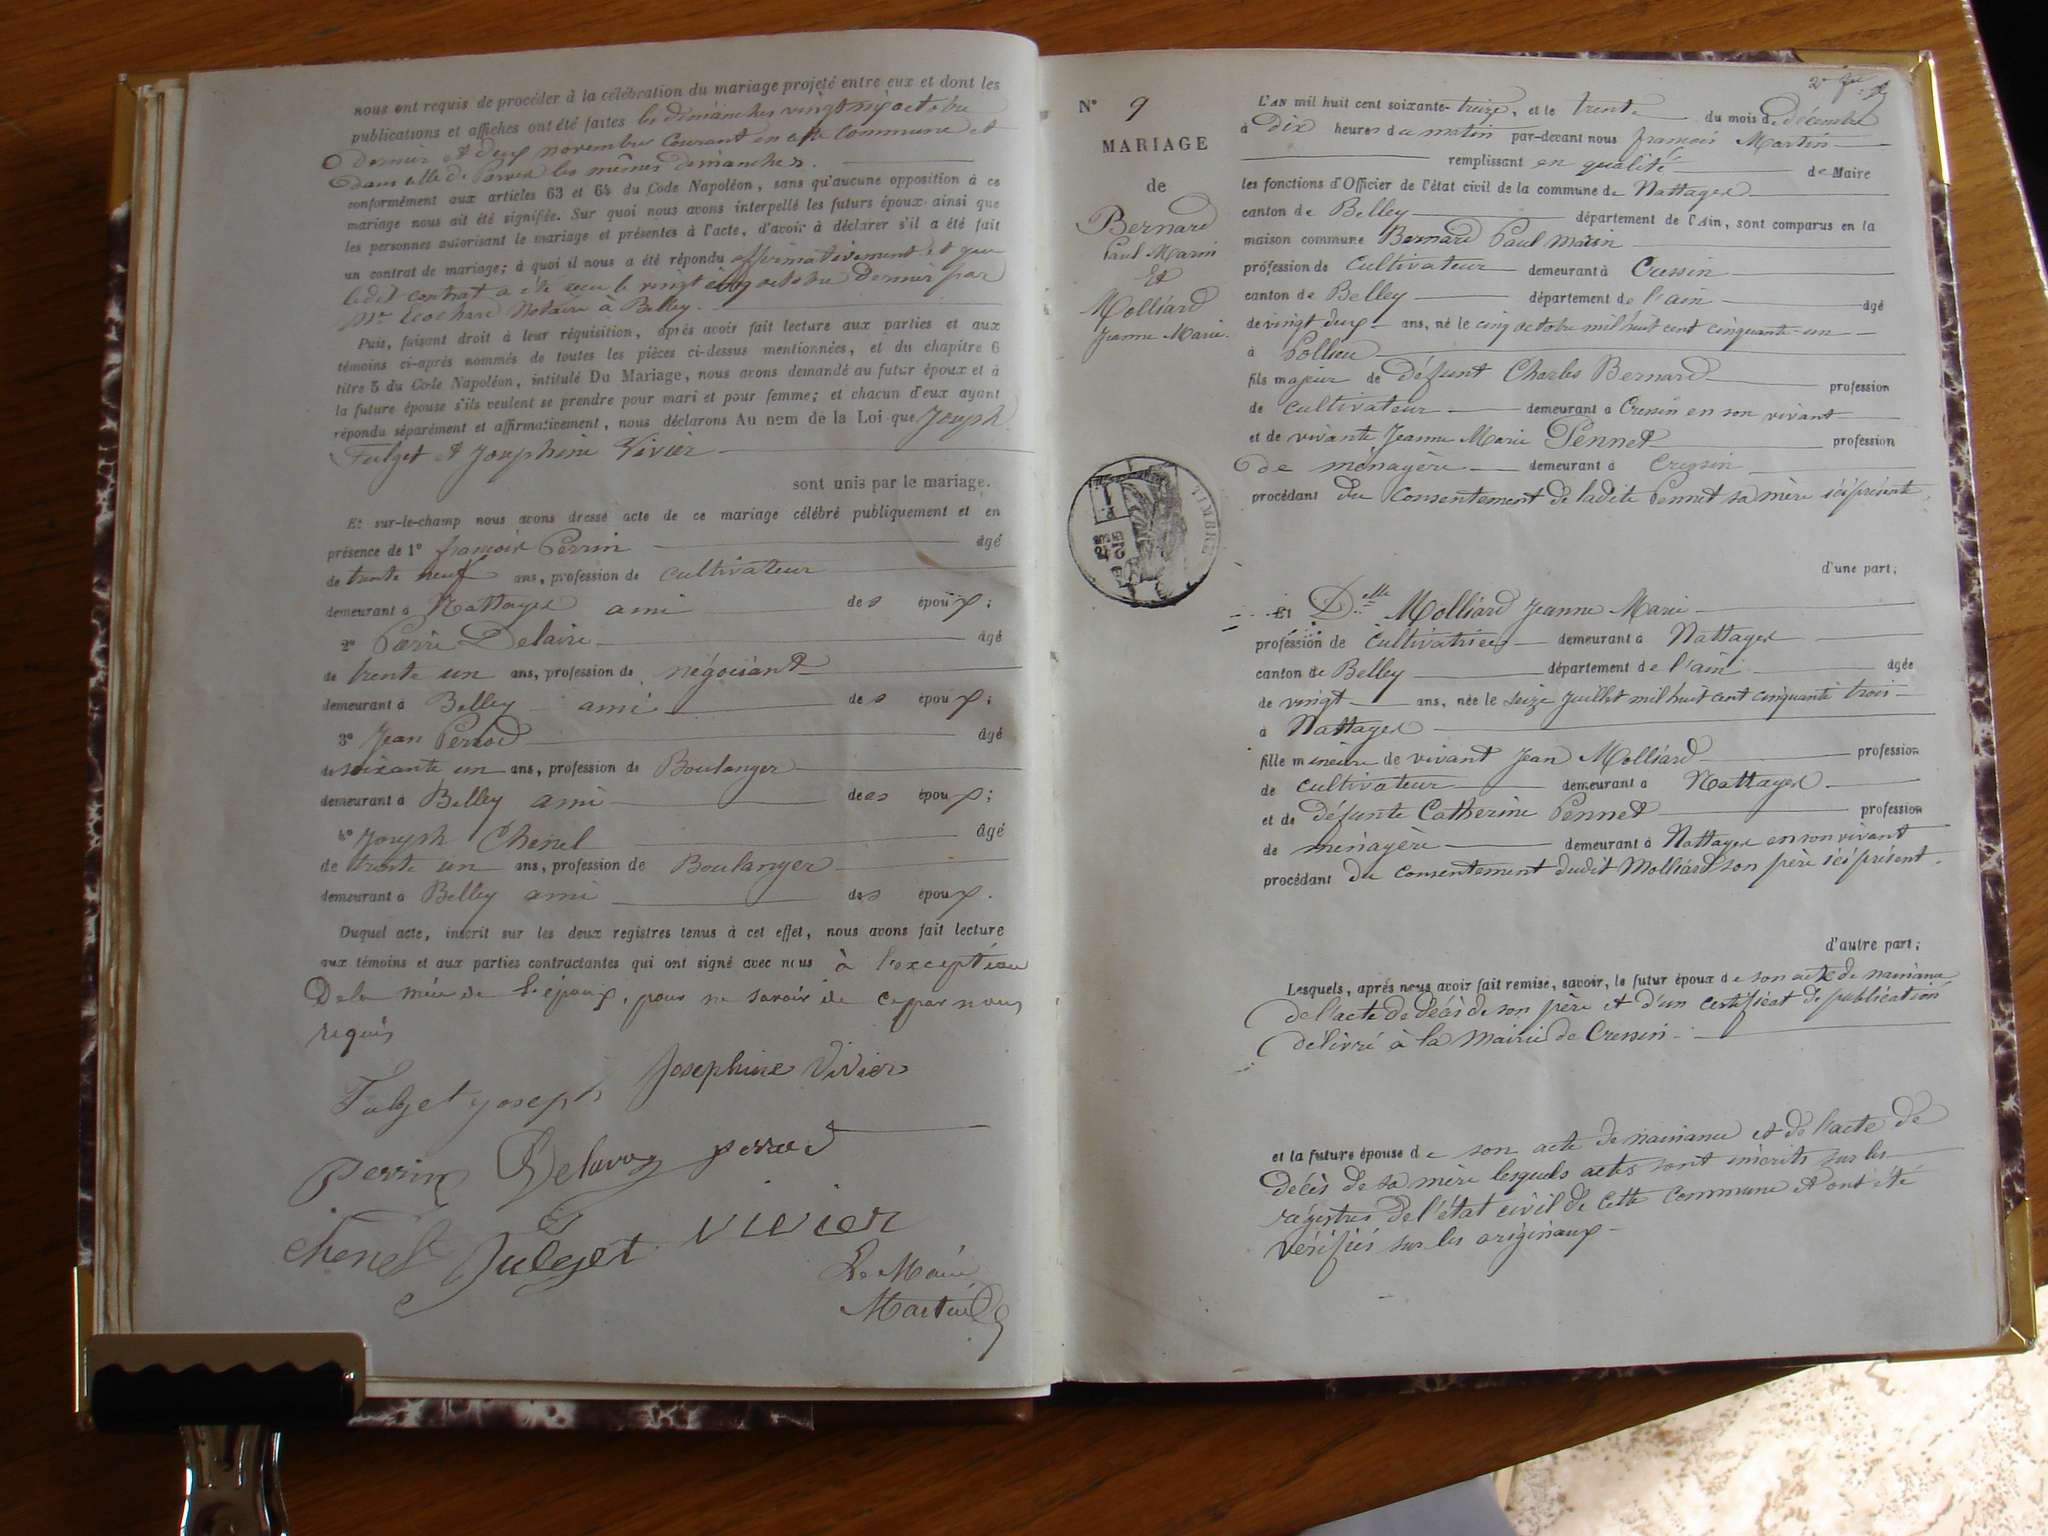 nous ont requis de procéder à la célébration du mariage projeté entre eux et dont les
publications et affiches ont été faites les dimanches vingt six octobre
dernier et deux novembre courant en cette commune et
dans celle de Parves les mêmes dimanches.
conformément aux articles 63 et 64 du Code Napoléon, sans qu'aucune opposition à ce
mariage nous ait été signifiée. Sur quoi nous avons interpellé les futurs époux ainsi que
les personnes autorisant le mariage et présentes à l'acte, d'avoir à déclarer s'il a été fait
un contrat de mariage; à quoi il nous a été répondu affirmativement et que
ledit contrat a été reçu le vingt cinq octobre dernier par
Me Notaire à Belley.
Puis, faisant droit à leur réquisition, après avoir fait lecture aux parties et aux
témoins ci-après nommés de toutes les pièces ci-dessus mentionnées, et du chapitre 6
titre 5 du Code Napoléon, intitulé Du Mariage, nous avons demandé au futur époux et à
la future épouse s'ils veulent se prendre pour mari et pour femme; et chacun d'eux ayant
répondu séparément et affirmativement, nous déclarons Au nom de la Loi que Joseph
Fulget et Josephine Vivier
sont unis par le mariage.
Et sur-le-champ nous avons dressé acte de ce mariage célébré publiquement et en
présence de 1° françois Perrin âgé
de trente neuf ans, profession de cultivateur
demeurant à Nattages ami des époux;
2° Pierre Delaire âgé
de trente un ans, profession de négociant
demeurant à Belley ami des époux;
3° Jean Perrod âgé
de soixante un ans, profession de Boulanger
demeurant à Belley ami des époux;
4° Joseph Chenel âgé
de trente un ans, profession de Boulanger
demeurant à Belley ami des époux.
Duquel acte, inscrit sur les deux registres tenus à cet effet, nous avons fait lecture
aux témoins et aux parties contractantes qui ont signé avec nous à l'exception
De la mère de l'époux, pour ne savoir de ce par nous
requis
Fulget joseph Josephine Vivier
perrin perrod
chenel fulget vivier
Le Maire
Martin
N° 9
MARIAGE
de
Bernard
Paul Marin
Et
Molliard
Jeanne Marie.
TIMBRE
L'AN mil huit cent soixante-treize, et le trente du mois de décembre
à dix heures du matin par-devant nous françois Martin
remplissant en qualité de Maire
les fonctions d'Officier de l'état civil de la commune de Nattages
canton de Belley département de l'Ain, sont comparus en la
maison commune Bernard Paul Marin
profession de cultivateur demeurant à Cressin
canton de Belley département de l'ain âgé
de vingt deux ans, né le cinq octobre mil huit cent cinquante-un
à Pollieu
fils majeur de défunt Charles Bernard profession
de cultivateur demeurant à Cressin en son vivant
et de vivante Jeanne Marie Pennet profession
de ménagère demeurant à Cressin
procédant du consentement de ladite Pennet sa mère ici présente,
d'une part;
Et Delle Molliard Jeanne Marie
profession de Cultivatrice demeurant à Nattages
canton de Belley département de l'ain âgée
de vingt ans, née le seize juillet mil huit cent cinquante trois
à Nattages
fille mineure de vivant Jean Molliard profession
de cultivateur demeurant à Nattages
et de défunte Catherine Pennet profession
de ménagère demeurant à Nattages en son vivant
procédant du consentement dudit Molliard son père ici présent.
d'autre part;
Lesquels, après nous avoir fait remise, savoir, le futur époux de son acte de naissance
de l'acte de décès de son père et d'un certificat de publication
délivré à la Mairie de Cressin.
et la future épouse de son acte de naissance et de l'acte de
décès de sa mère lesquels actes sont inscrits sur les
registres de l'état civil de cette commune et ont été
vérifiés sur les originaux